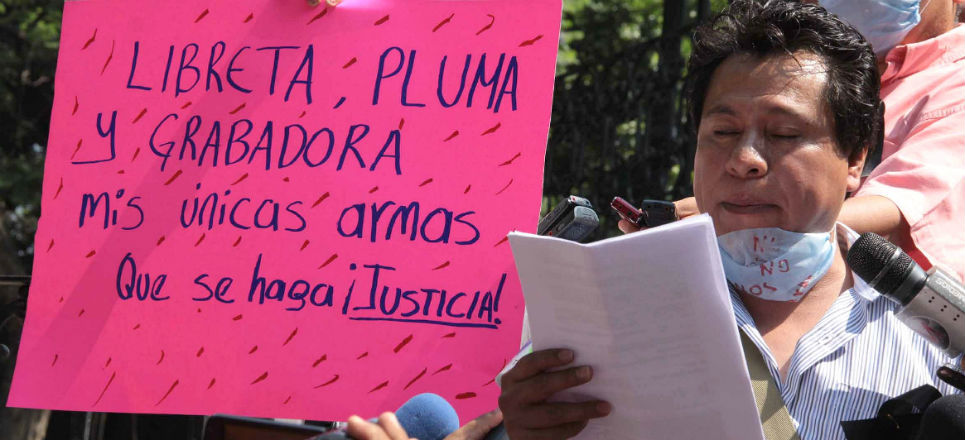 LIBRETA, PLUMA
y GRABADORA
mis únicas armas
Que se haga ¡JUSTICIA!
NO